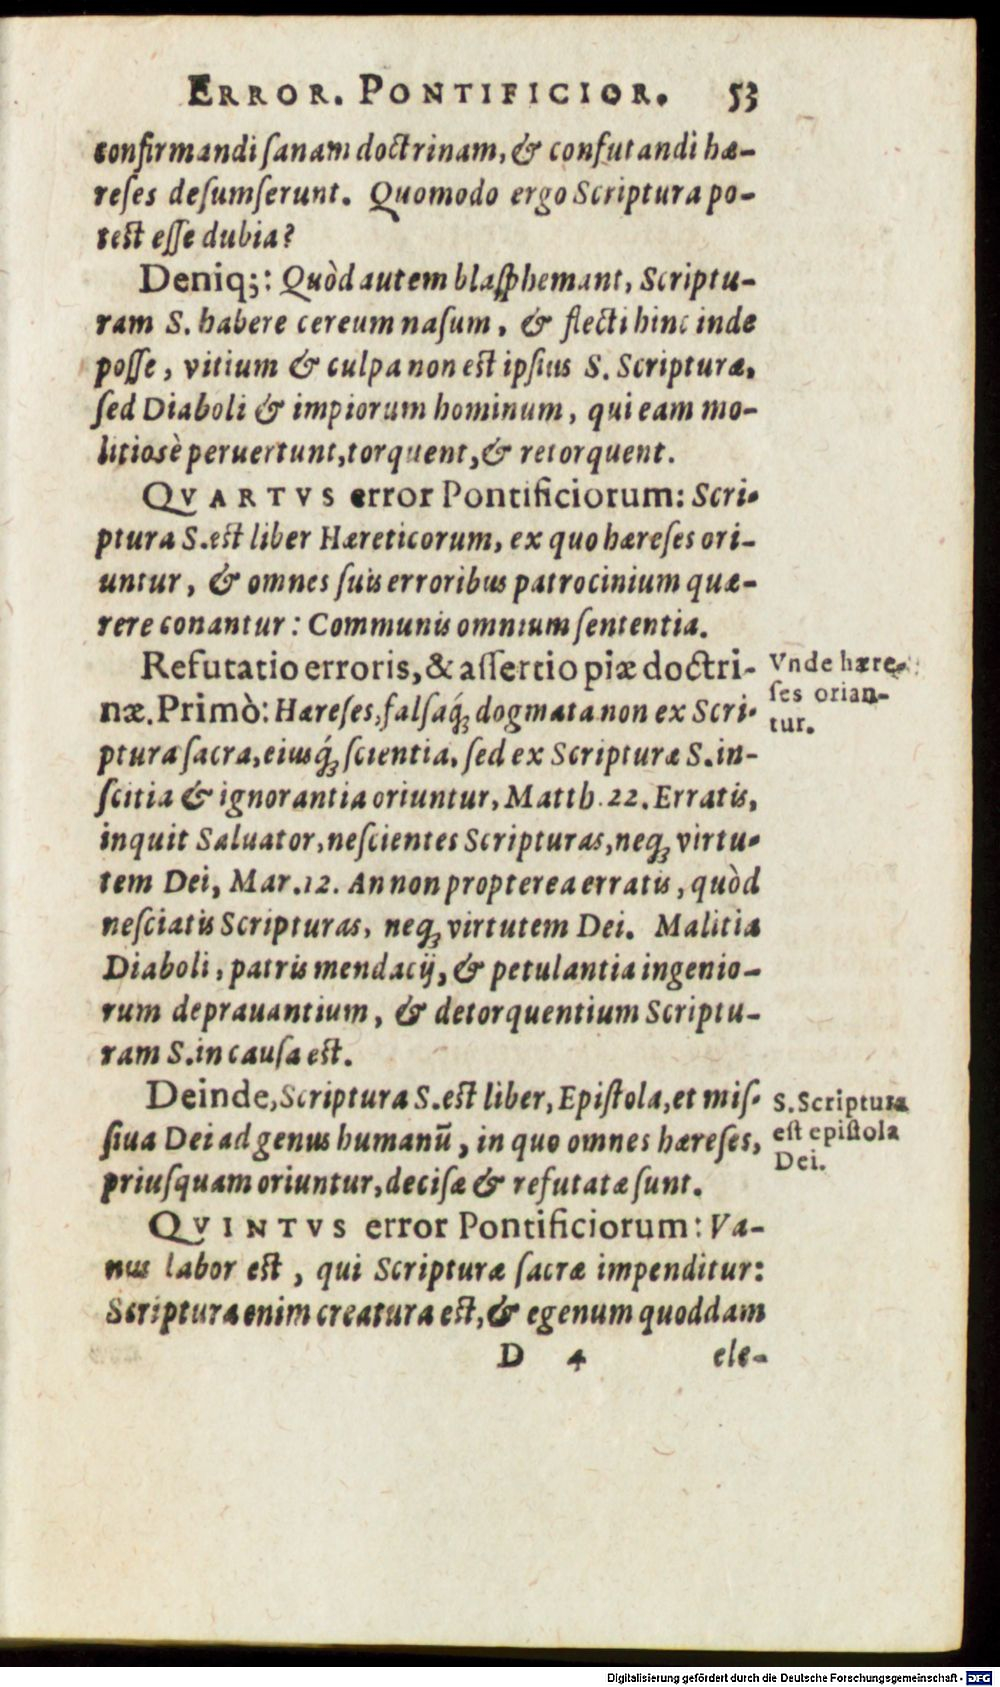 ERROR. PONTIFICIOR. 53
confirmandi ſanam doctrinam, & confutandi hæ-
reſes deſumſerunt. Quomodo ergo Scriptura po-
test eſſe dubia?
Deniq;: Quòd autem blaſphemant, Scriptu-
ram S. habere cereum naſum, & flecti hinc inde
poſſe, vitium & culpa non est ipſius S. Scripturæ,
ſed Diaboli & impiorum hominum, qui eam mo-
litiosè peruertunt, torquent, & retorquent.
QVARTVS error Pontificiorum: Scri-
ptura S. est liber Hæreticorum, ex quo hæreſes ori-
untur, & omnes ſuis erroribus patrocinium quæ-
rere conantur: Communis omnium ſententia.
Refutatio erroris, & aſſertio piæ doctri-
næ. Primò: Hæreſes, falſaq́; dogmata non ex Scri-
ptura ſacra, eiusq́; ſcientia, ſed ex Scripturæ S. in-
ſcitia & ignorantia oriuntur, Matth. 22. Erratis,
inquit Saluator, neſcientes Scripturas, neq; virtu-
tem Dei, Mar. 12. An non propterea erratis, quòd
neſciatis Scripturas, neq; virtutem Dei. Malitia
Diaboli, patris mendacij, & petulantia ingenio-
rum deprauantium, & detorquentium Scriptu-
ram S. in cauſa est.
Vnde hære-
ſes orian-
tur.
Deinde, Scriptura S. est liber, Epiſtola, et miſ-
ſiua Dei ad genus humanū, in quo omnes hæreſes,
priuſquam oriuntur, deciſæ & refutatæ ſunt.
S. Scriptura
est epiſtola
Dei.
QVINTVS error Pontificiorum: Va-
nus labor est, qui Scripturæ ſacræ impenditur:
Scriptura enim creatura est, & egenum quoddam
D 4 ele-
Digitalisierung gefördert durch die Deutsche Forschungsgemeinschaft - DFG